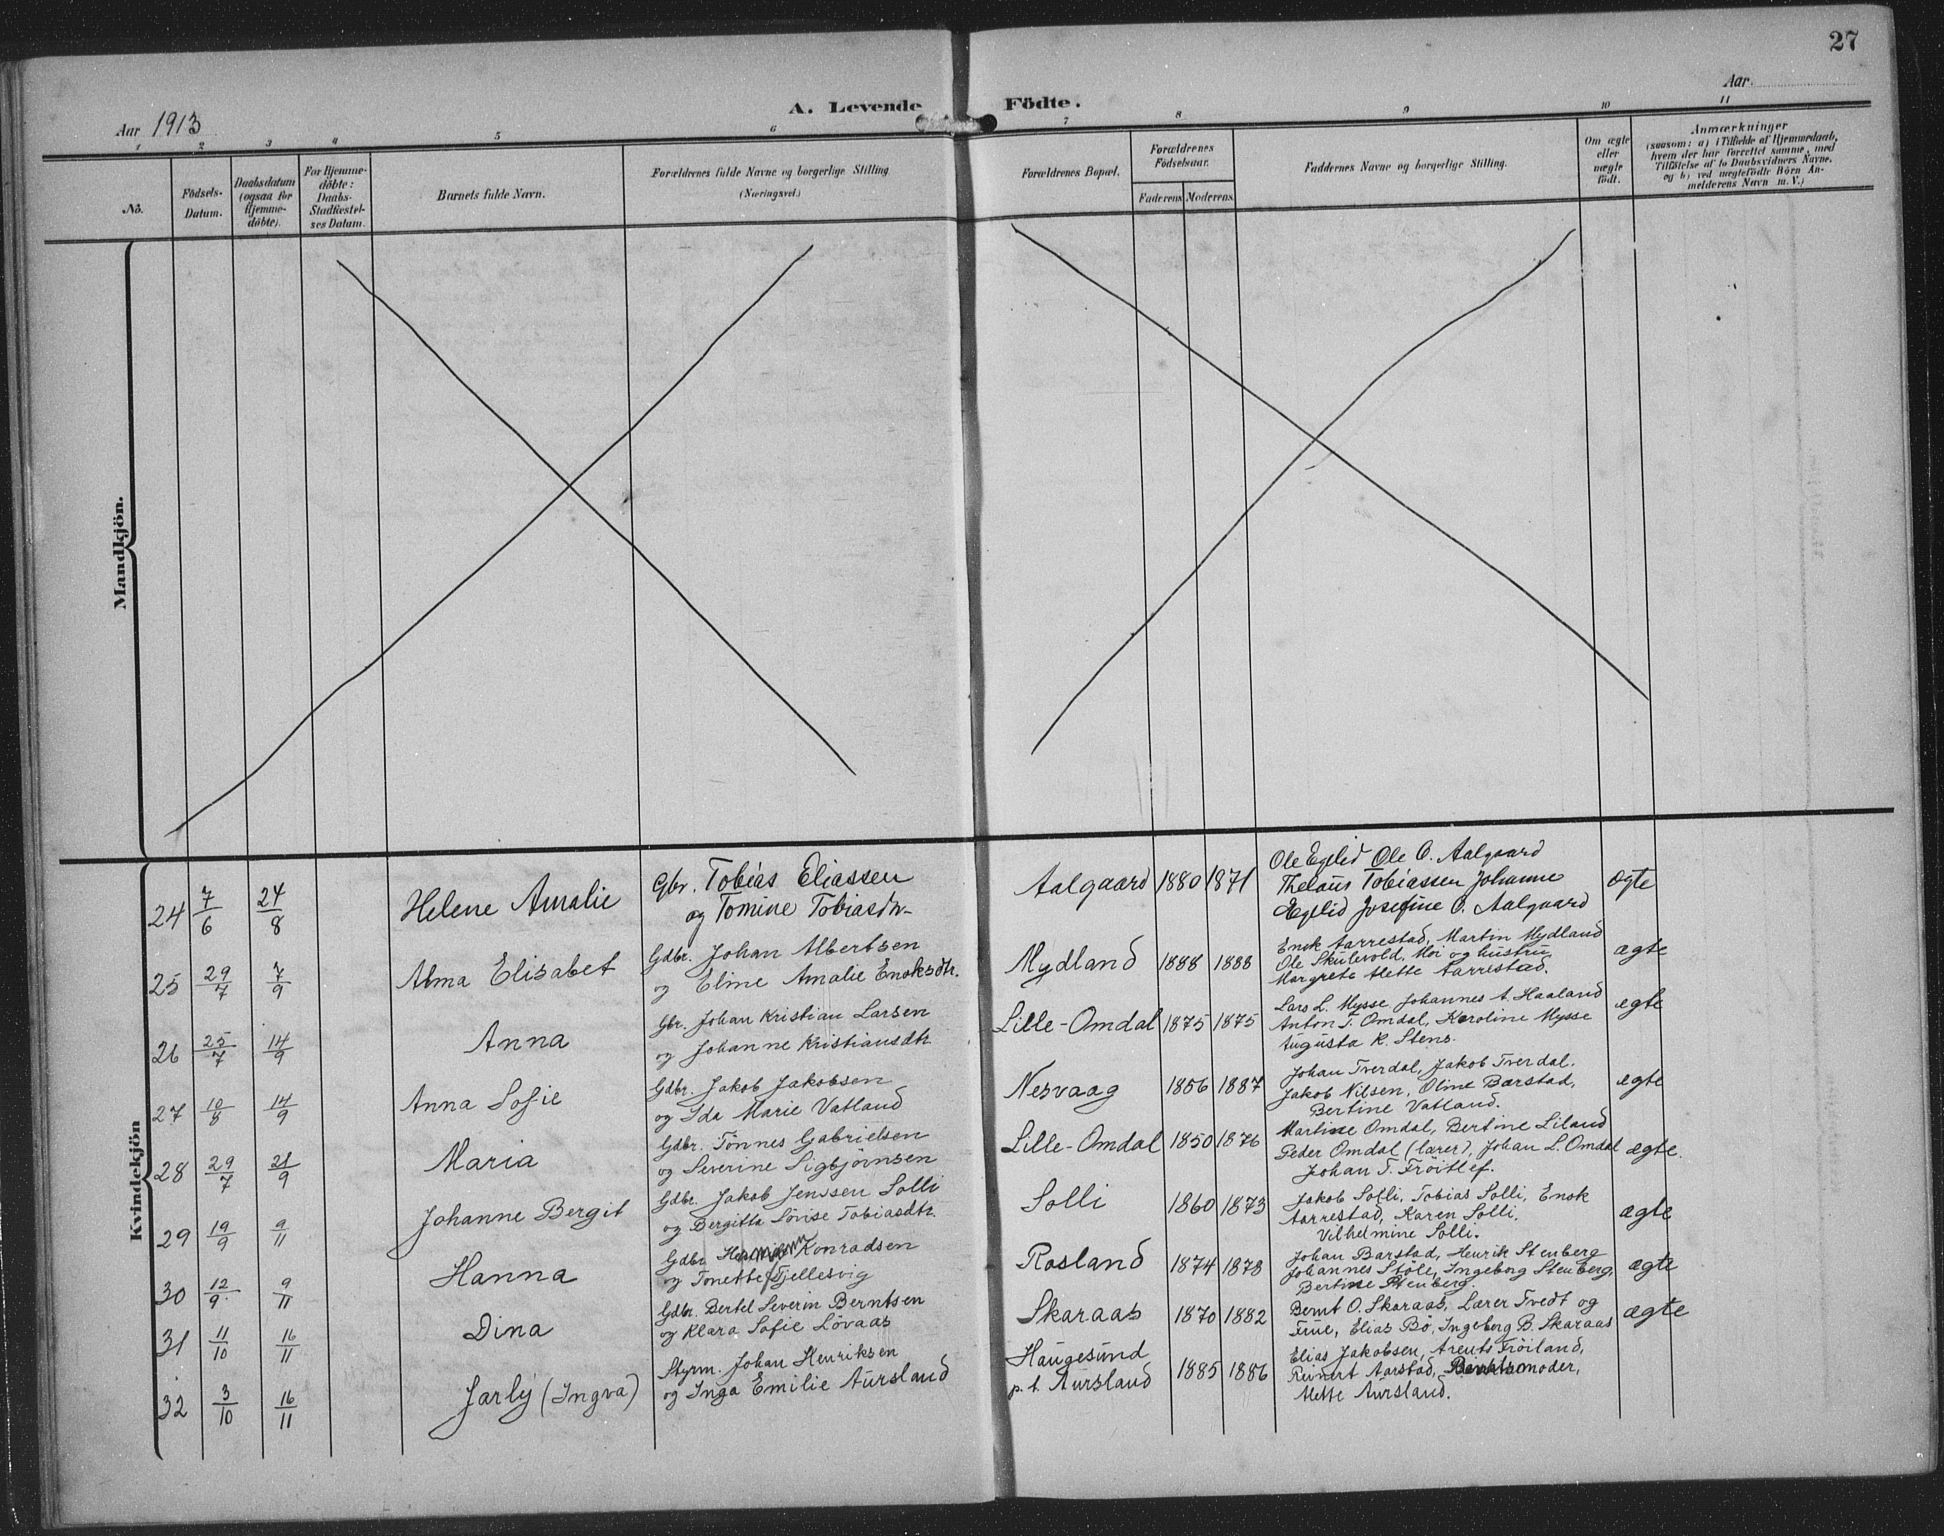 27
Aar 1913
A. Levende Födte.
Aar
1 2 3 4 5 6 7 8 9 10 11
No.
Födsels-Datum.
Daabsdatum (ogsaa for Hjemme-döbte).
For Hjemme-döbte: Daabs-Stadfæstel-ses Datum.
Barnets fulde Navn.
Forældrenes fulde Navne og borgerlige Stilling (Næringsvei.)
Forældrenes Bopæl.
Forældrenes Födselsaar.
Faderens Moderens
Faddernes Navne og borgerlige Stilling.
Om ægte eller uægte födt.
Anmærkninger
(saasom: a) i Tilfælde af Hjemmedaab,
hvem der har forrettet samme, med
Tilföielse af to Daabsvidners Navne.
og b) ved uægtefödte Börn An-
melderens Navn m. V.)
Mandkjön.
Kvindekjön
24 7/6 24/8 Helene Amalie Gbr. Tobias Eliassen og Tomine Tobiasdtr. Aalgaard 1880 1871 Ole Eglid Ole O. Aalgaard Thelaus Tobiassen Johanne Eglid Josefine O. Aalgaard ægte
25 29/7 7/9 Alma Elisabet Gdbr. Johan Albertsen og Eline Amalie Enoksdtr. Mydland 1888 1888 Enok Aarrestad, Martin Mydland Ole Skulevold, Moi og hustru Margrete Mette Aarrestad. ægte
26 25/7 14/9 Anna Gbr. Johan Kristian Larsen og Johanne Kristiansdtr Lille-Omdal 1875 1875 Lars L. Mysse Johannes A. Haaland Anton T. Omdal, Karoline Mysse Augusta K. Stens. ægte
27 10/8 14/9 Anna Sofie Gdbr. Jakob Jakobsen og Ida Marie Vatland Nesvaag 1856 1887 Johan Tverdal, Jakob Tverdal. Jakob Nilsen, Oline Barstad, Bertine Vatland. ægte
28 29/7 21/9 Maria Gdbr. Tönnes Gabrielsen og Severine Sigbjörnsen Lille-Omdal 1850 1876 Martine Omdal, Bertine Liland Peder Omdal (lærer), Johan L. Omdal Johan T. Fröitlef. ægte.
29 19/9 9/11 Johanne Bergit Gdbr. Jakob Jenssen Solli og Bergitta Lovise Tobiasdtr. Solli 1860 1873 Jakob Solli, Tobias Solli, Enok Aarrestad, Karen Solli, Vilhelmine Solli. ægte
30 12/9 9/11 Hanna Gdbr. Konradsen og Tonette Fjellesvig Rosland 1874 1878 Johan Barstad, Henrik Stenberg Johannes Støle, Ingeborg Stenberg, Bertine Stenberg. ægte
31 11/10 16/11 Dina Gdbr. Bertel Severin Berntsen og Klara Sofie Lövaas Skaraas 1870 1882 Bernt O. Skaraas, Lærer Tvedt og Frue, Elias Bö, Ingeborg B. Skaraas ægte
32 3/10 16/11 Jarly (Ingva) Styrm. Johan Henriksen og Inga Emilie Aursland Haugesund p. t. Aursland 1885 1886 Elias Jakobsen, Arents Fröiland, Reinert Aarstad, moder, Mette Aursland.